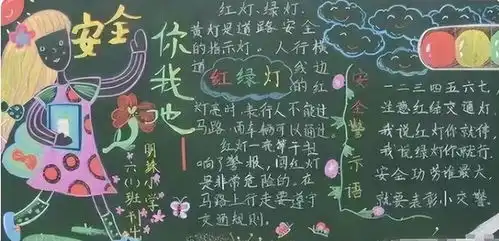 安全
你我他
明珠小学
六(1)班
红灯.绿灯.
黄灯是道路安全
的指示灯.人行横道
红绿灯
线边
的红
灯亮时,行人不能过
马路,而车辆可以通过
红灯一亮等于拉
响了警报,闯红灯
是非常危险的.在
马路上行走要遵守
交通规则.
安全警示语
一二三四五六七,
注意红绿交通灯.
我说红灯你就停
我说绿灯你就行.
安全功劳谁最大,
就要表彰小交警.